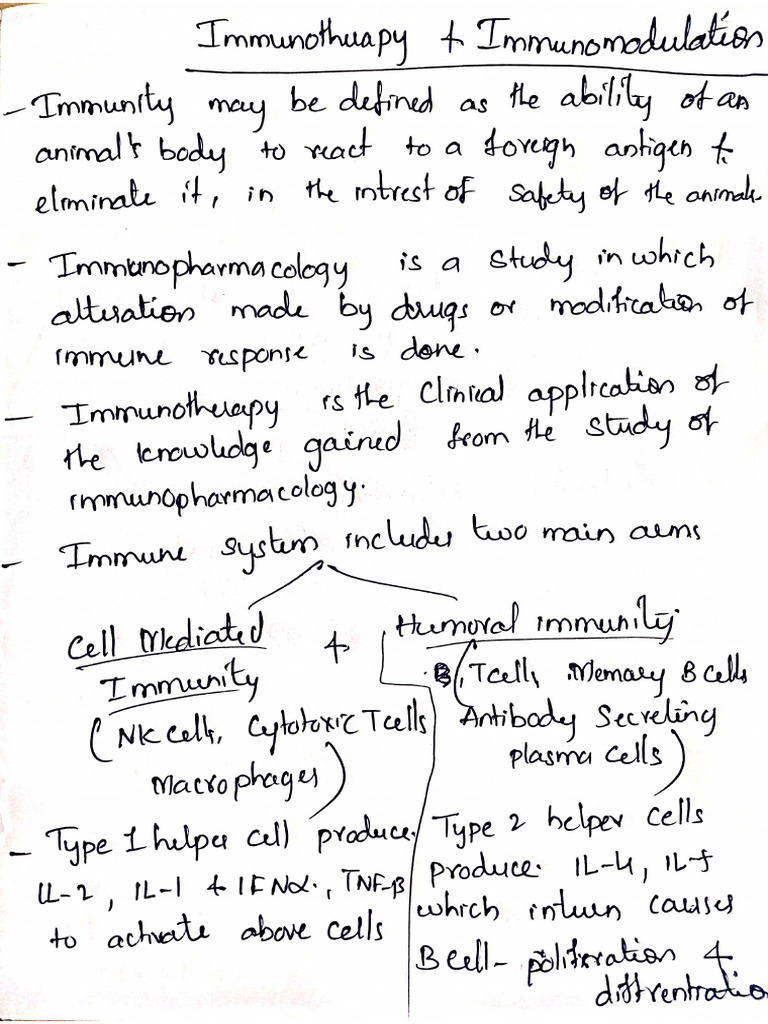 Immunothuapy & Immunomodulation
- Immunity may be defined as the ability of an
animal's body to react to a foreign antigen &
eliminate it, in the intrest of safety of the animal.
- Immunopharmacology is a study in which
alteration made by drugs or modification of
immune response is done.
- Immunotherapy is the Clinical application of
the knowledge gained from the study of
immunopharmacology.
- Immune system includes two main arms
Cell Mediated
Immunity
(NK cells, Cytotoxic T cells
Macrophages)
&
Humoral immunity
(B, T cells, Memary B cells
Antibody Secreting
plasma cells)
- Type 1 helper cell produce.
IL-2, IL-1 & IFNα., TNF-β
to activate above cells
Type 2 helper cells
produce. IL-4, IL-5
which inturn causes
B cell - poliferation &
diffrentration